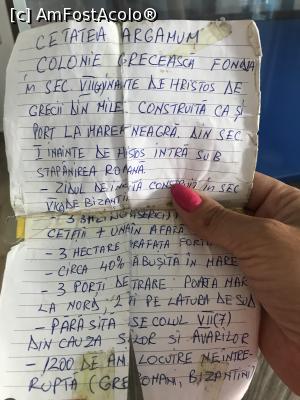 [c] AmFostAcolo®
CETATEA ARGAMUM
COLONIE GRECEASCA FONDA
ÎN SEC. VII ÎNAINTE DE HRISTOS DE
GRECII DIN MILET CONSTRUITĂ CA ȘI
PORT LA MAREA NEAGRĂ. DIN SEC
I ÎNAINTE DE HISTOS INTRĂ SUB
STAPÂNIREA ROMANĂ.
- ZIDUL DE INCINTĂ CONSTRUIT ÎN SEC
VI DE BIZANTI
- 3 BAZILICI
CETĂȚII + UNA ÎN AFARĂ
- 3 HECTARE
- CIRCA 40% ABUȘITĂ ÎN MARE
- 3 PORȚI DE TRARE: POARTA MAR
LA NORD, 2 PE LATURA DE SUD
- PĂRĂSITA SECOLUL VII (7)
DIN CAUZA ȘI AVARILOR
- 1200 DE ANI LOCUIRE NEÎNTRE-
RUPTĂ (GRE OMANI, BIZANTINI)